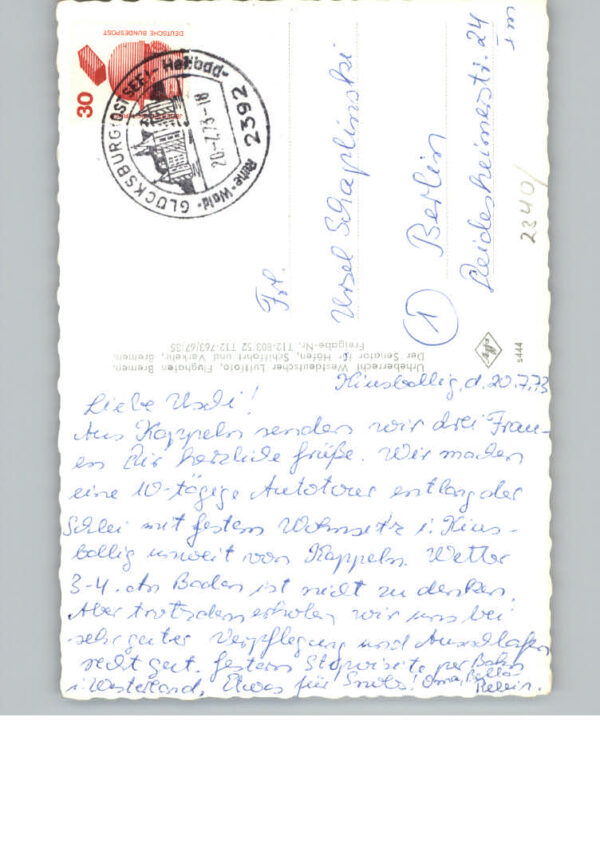 DEUTSCHE BUNDESPOST
30
GLÜCKSBURG · OSTSEE · Heilbad ·
Ruhe · Wald ·
20.-7.73-18
2392
Frl.
Ursel Schaplinski
① Berlin
Deidesheimerstr. 24
2340/
Urheberrecht Westdeutscher Luftfoto, Flughafen Bremen.
Der Senator f. Häfen, Schiffahrt und Verkehr, Bremen.
Freigabe-Nr. T12-803/52 T12-763/67/35
s444
d. 20.7.73
Liebe Uschi!
Aus Kappeln senden wir drei Frau-
en Dir herzliche Grüße. Wir machen
eine 10-tägige Autotour entlang der
Schlei mit festem Wohnsitz i. Kius-
ballig unweit von Kappeln. Wetter
3-4. An Baden ist nicht zu denken.
Aber trotzdem erholen wir uns bei
sehr guter Verpflegung und Ausschlafen
recht gut. Gestern Stipvisite per Bahn
i. Westerland, Etwas für Snobs! Oma,